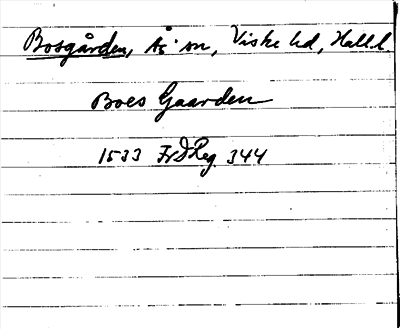 Bosgården, Ås sn, Viske hd, Hall.l.
Boes Gaarden
1533 Fr I Reg 344